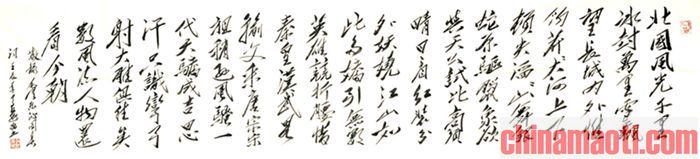 北國風光千里
冰封萬里雪飄
望長城内外惟
餘莽莽大河上下
頓失滔滔山舞銀
蛇原驅蠟象欲
與天公試比高須
晴日看紅裝分
外妖嬈江山如
此多嬌引無數
英雄競折腰惜
秦皇漢武略
輸文采唐宗宋
祖稍遜風騷一
代天驕成吉思
汗只識彎弓
射大雕俱往矣
數風流人物還
看今朝
chinamaoti.com